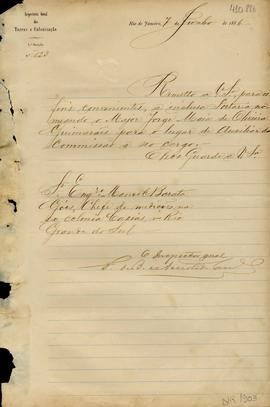 Inspectoria Geral
das
Terras e Colonisação
Rio de Janeiro, 7 de Junho de 1886.
Remetto a V. Sª, para os
fins convenientes, a inclusa Portaria no-
meando o Major Jorge Maia de Oliveira
Guimarães para o lugar de Auxiliar da
Commissão a seo cargo.
Deos Guarde a V. Sª
Sr.
Engº Manoel Barata
Góes, Chefe de medições na
ex colonia Caxias, no Rio
Grande do Sul
O Inspector geral